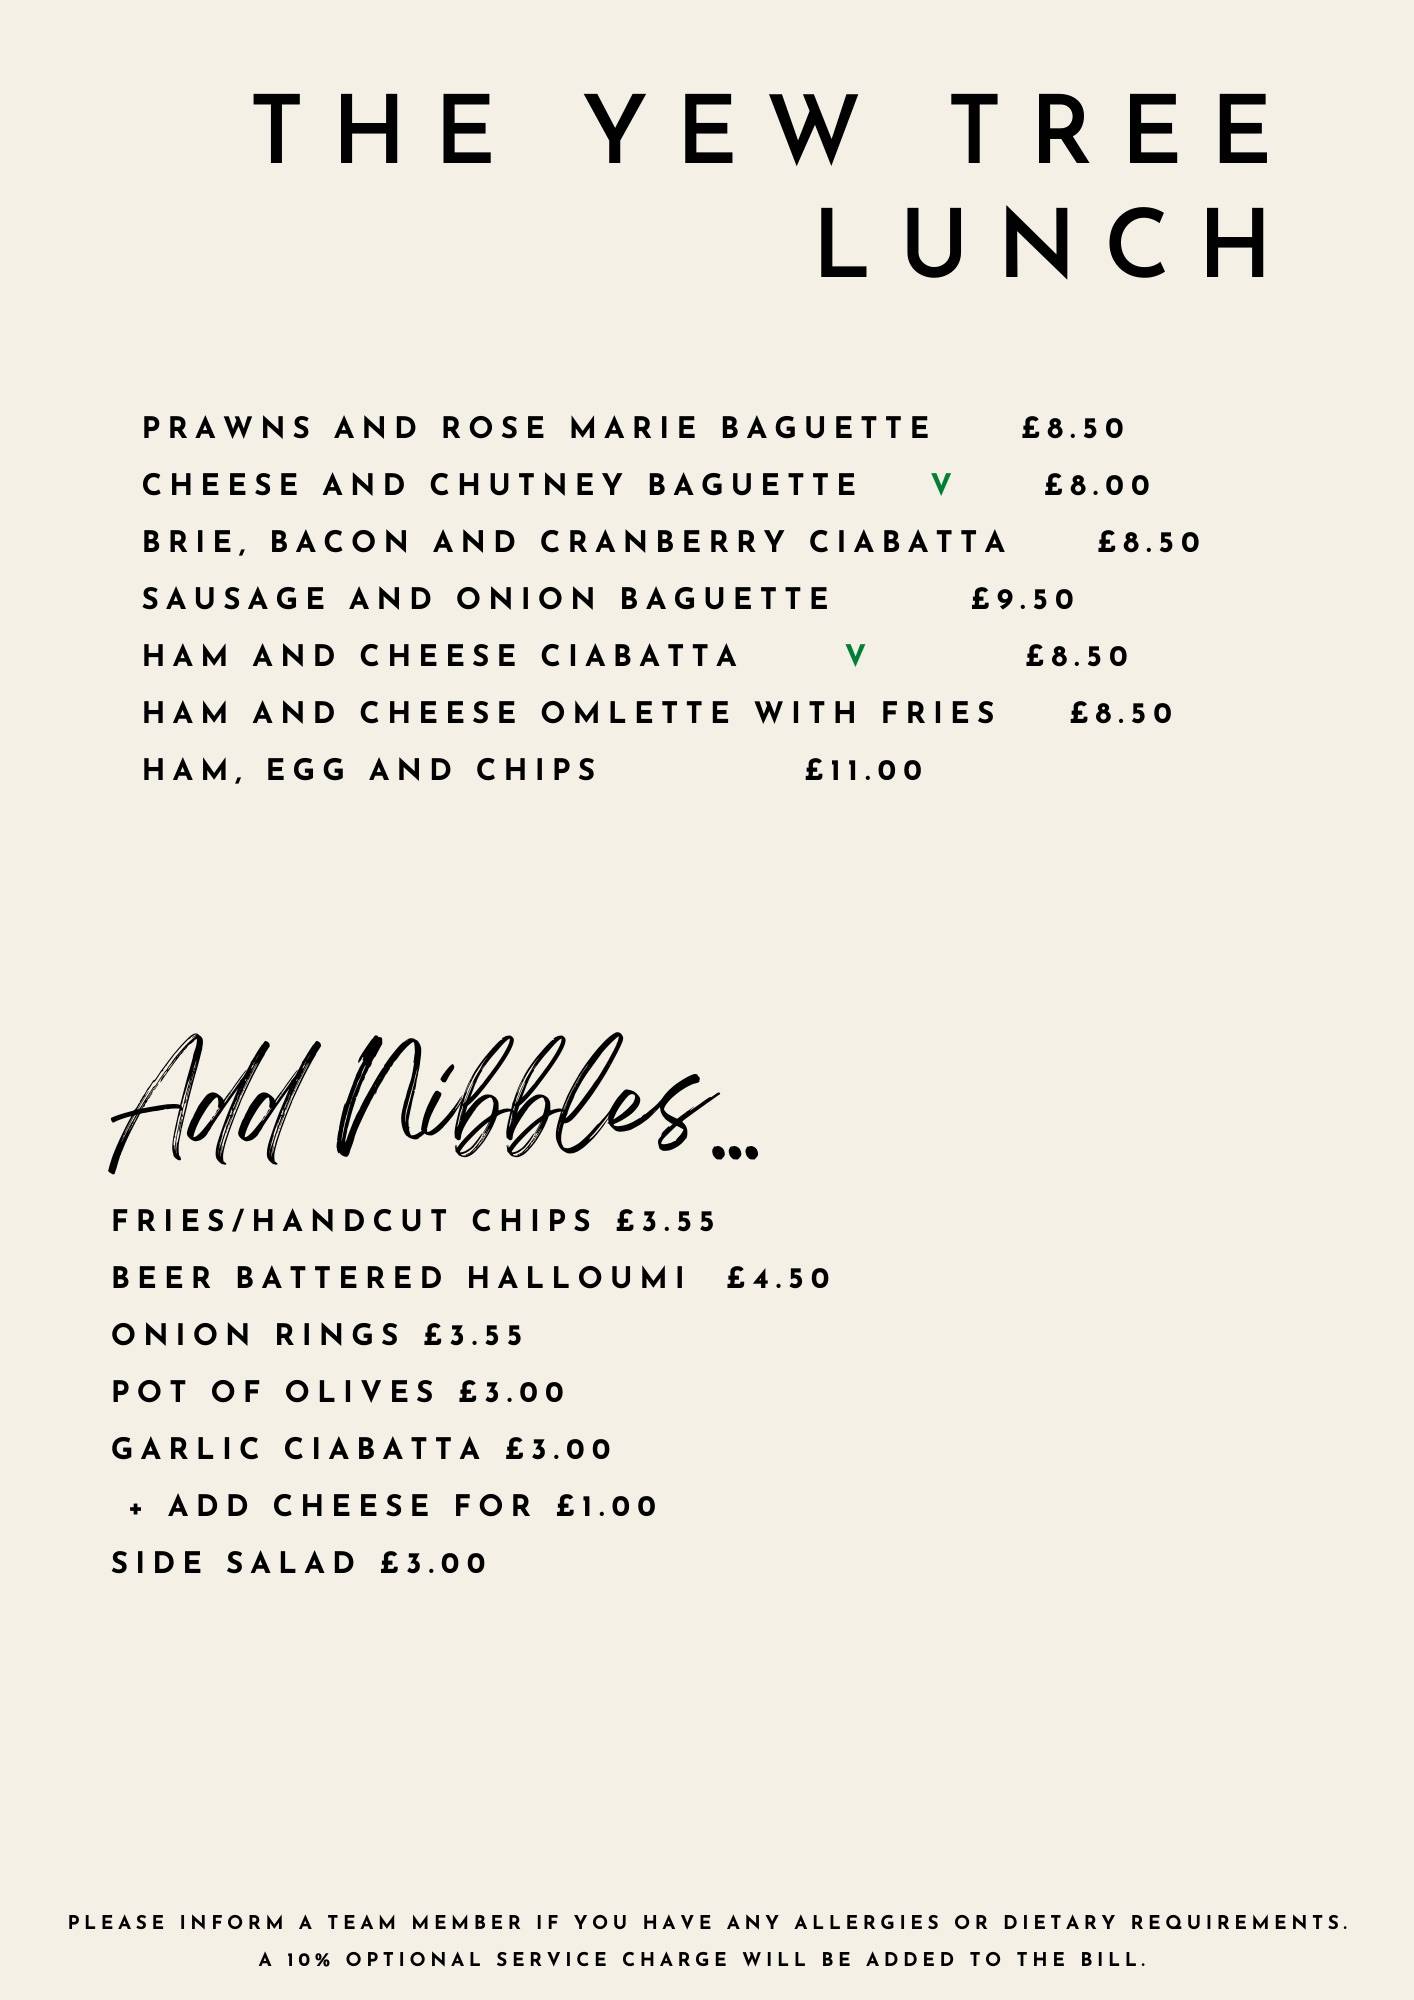 THE YEW TREE
LUNCH
PRAWNS AND ROSE MARIE BAGUETTE £8.50
CHEESE AND CHUTNEY BAGUETTE V £8.00
BRIE, BACON AND CRANBERRY CIABATTA £8.50
SAUSAGE AND ONION BAGUETTE £9.50
HAM AND CHEESE CIABATTA V £8.50
HAM AND CHEESE OMLETTE WITH FRIES £8.50
HAM, EGG AND CHIPS £11.00
Add Nibbles...
FRIES/HANDCUT CHIPS £3.55
BEER BATTERED HALLOUMI £4.50
ONION RINGS £3.55
POT OF OLIVES £3.00
GARLIC CIABATTA £3.00
+ ADD CHEESE FOR £1.00
SIDE SALAD £3.00
PLEASE INFORM A TEAM MEMBER IF YOU HAVE ANY ALLERGIES OR DIETARY REQUIREMENTS.
A 10% OPTIONAL SERVICE CHARGE WILL BE ADDED TO THE BILL.